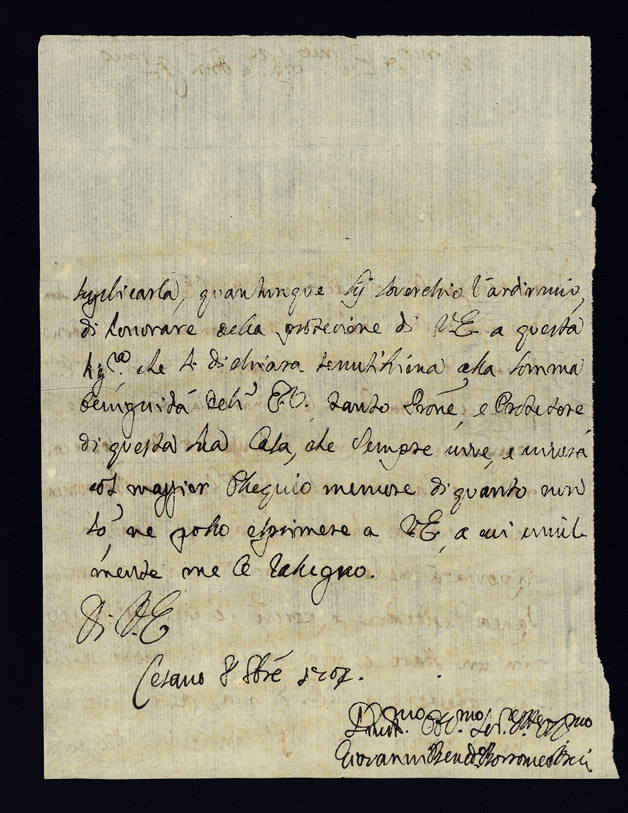 supplicarla, quantunque sij soverchio l'ardir mio,
di honorare della protecione di V.E. a questa
che si dichiara tenutissima alla somma
benignità dell' E.V. tanto Prone, e Protettore
di questa sua Casa, che sempre vive, e viverà
col maggior ossequio memore di quanto non
so, ne posso esprimere a V.E., a cui umil
mente me le rassegno.
Di V.E.
Cesano 8 8bre 1707.
Devot.mo Obl.mo Ser.re
Giovanni Bened.o Borromeo Arese